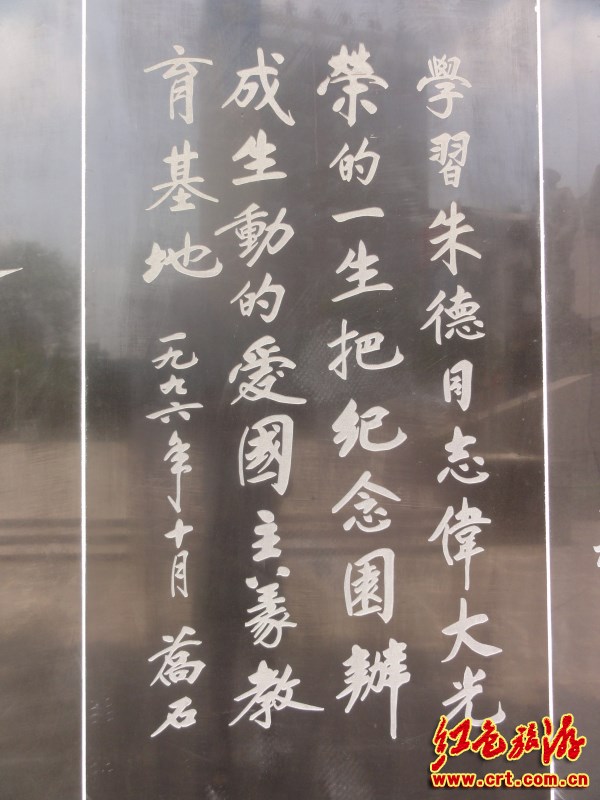 學習朱德同志偉大光
榮的一生把紀念園辦
成生動的愛國主義教
育基地
一九九六年十月 喬石
红色旅游
www.crt.com.cn